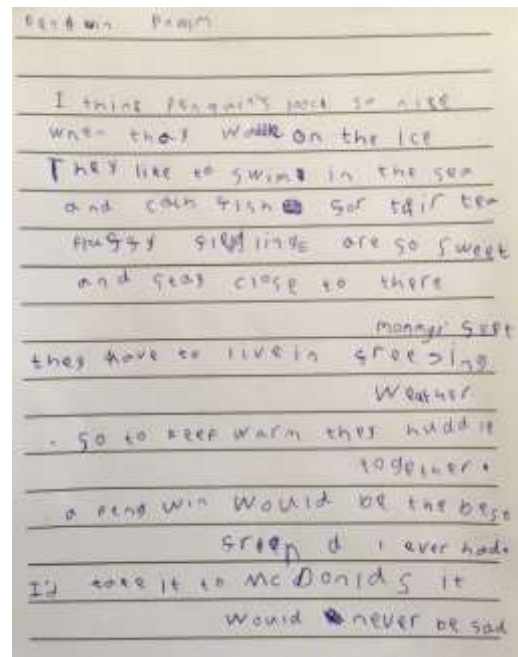 pengwin Powm
I think Penguin's look so nise
when they walk on the ice
They like to swim in the sea
and cach fish for tair tea
fluffy siblings are so sweet
and stay close to there
mommys feet
they have to live in freesing
Weather
so to keep warm they huddle
together.
a pengwin would be the best
friend i ever had.
I'd take it to McDonlds it
would never be sad